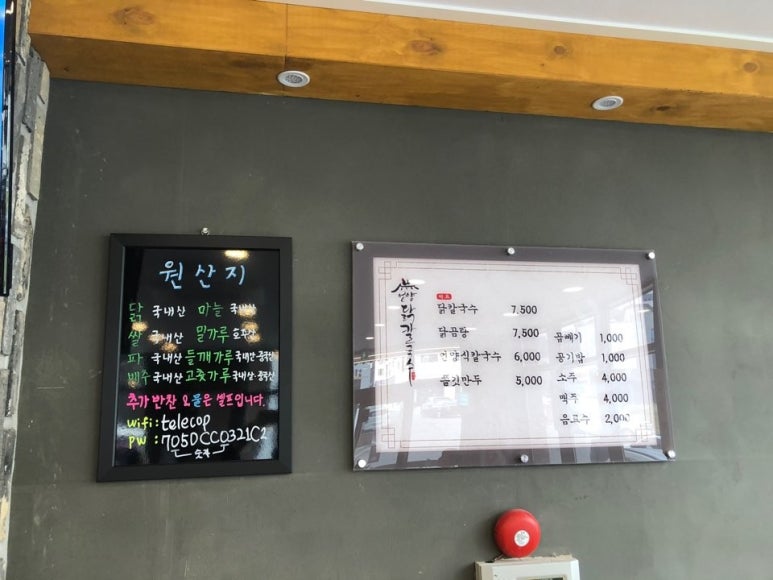 원산지
닭 국내산 마늘 국내산
쌀 국내산 밀가루 호주산
파 국내산 들깨가루 국내산·중국산
배추 국내산 고춧가루 국내산·중국산
추가 반찬 요물은 셀프입니다.
wifi: telecop
pw: 705DCC0321C2
숫자
언양닭칼국수
닭칼국수 7,500
닭곰탕 7,500
언양식칼국수 6,000
물김만두 5,000
곱빼기 1,000
공기밥 1,000
소주 4,000
맥주 4,000
음료수 2,000